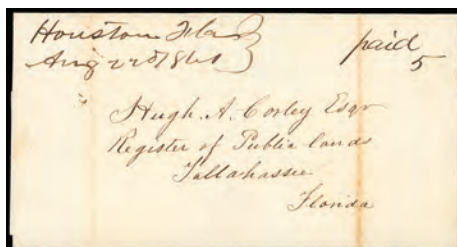 Houston Fla
Aug 22d 1861
paid
5
Hugh. A. Corley Esqr
Register of Public lands
Tallahassee
Florida